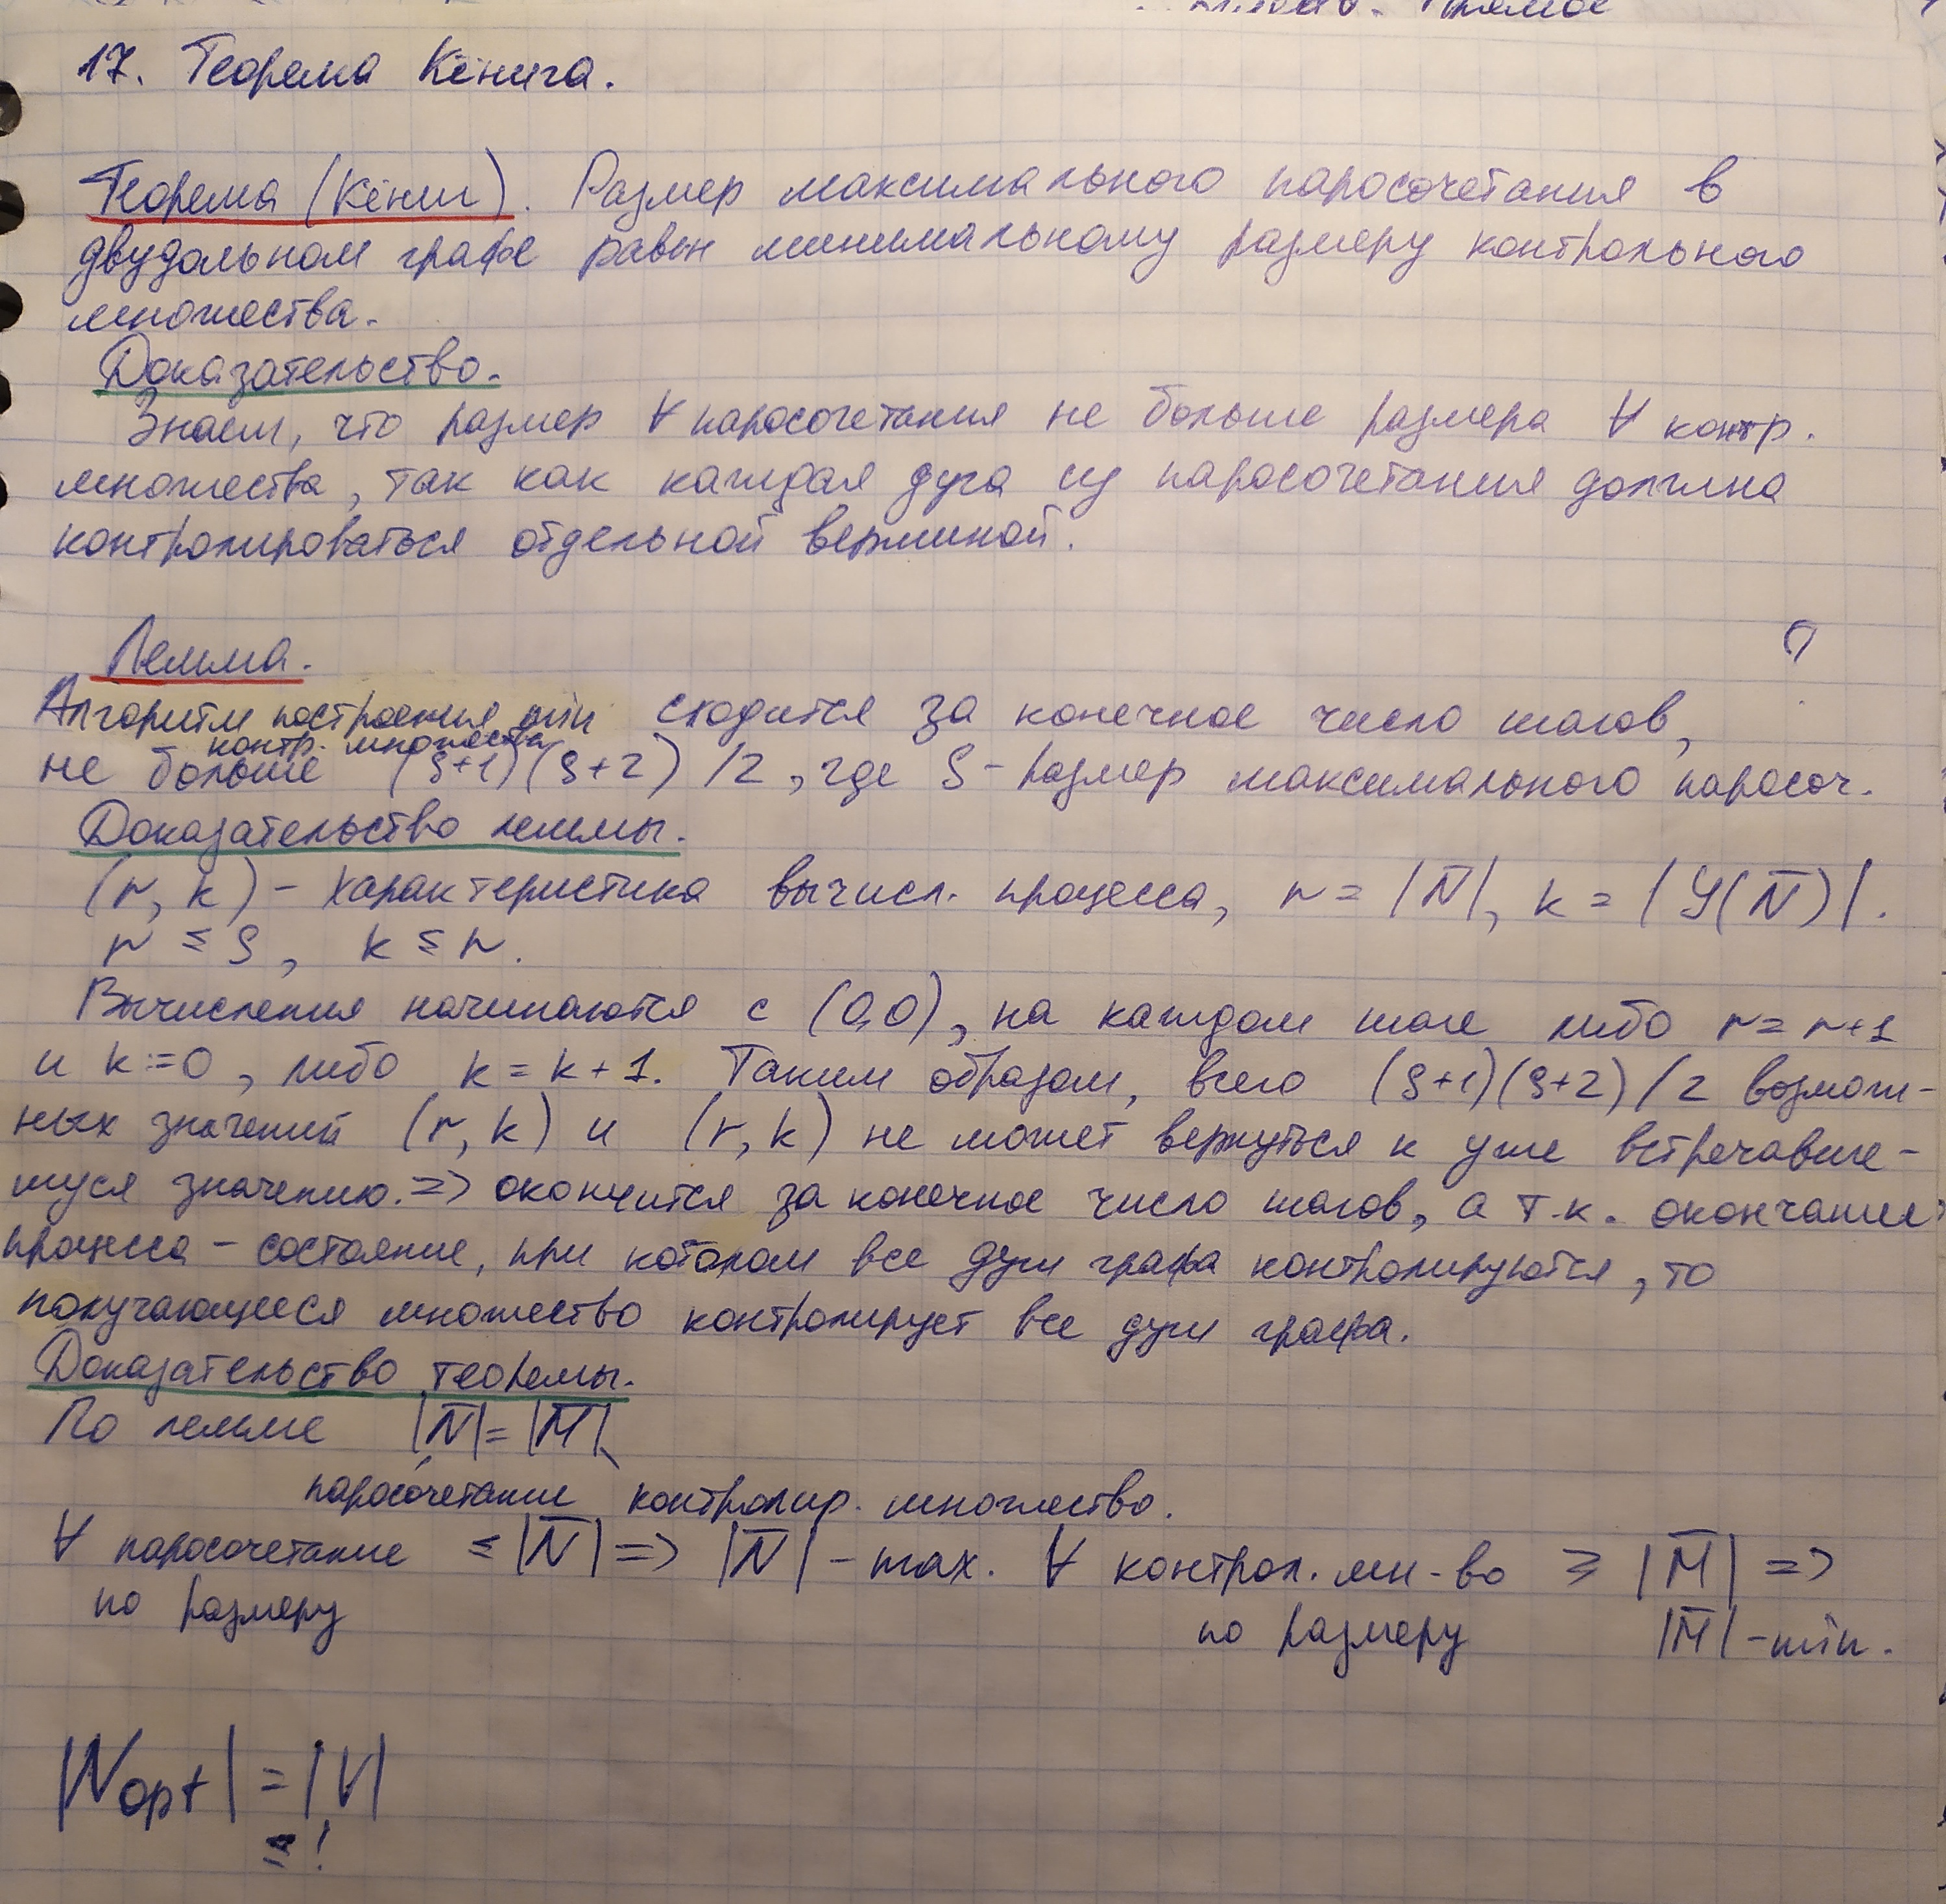 Прямое
17. Теорема Кёнига.
Теорема (Кёниг). Размер максимального паросочетания в
двудольном графе равен минимальному размеру контрольного
множества.
Доказательство.
Знаем, что размер ∀ паросочетания не больше размера ∀ контр.
множества, так как каждая дуга из паросочетания должна
контролироваться отдельной вершиной.
Лемма.
?
Алгоритм построения min сходится за конечное число шагов,
контр. множества
не больше (S+1)(S+2)/2, где S - размер максимального паросоч.
Доказательство леммы.
(r, k) - характеристика вычисл. процесса, r = |N̄|, k = |Y(N̄)|.
r ≤ S, k ≤ r.
Вычисления начинаются с (0,0), на каждом шаге либо r = r+1
и k:=0, либо k = k + 1. Таким образом, всего (S+1)(S+2)/2 возмож-
ных значений (r, k) и (r, k) не может вернуться к уже встречавше-
муся значению. => окончится за конечное число шагов, а т.к. окончание
процесса - состояние, при котором все дуги графа контролируются, то
получающееся множество контролирует все дуги графа.
Доказательство теоремы.
По лемме |N̄| = |M̄|
паросочетание контролир. множество.
∀ паросочетание ≤ |N̄| => |N̄| - max. ∀ контрол. мн-во ≥ |M̄| =>
по размеру по размеру |M̄| - min.
|Nopt| = |V|
≤ !